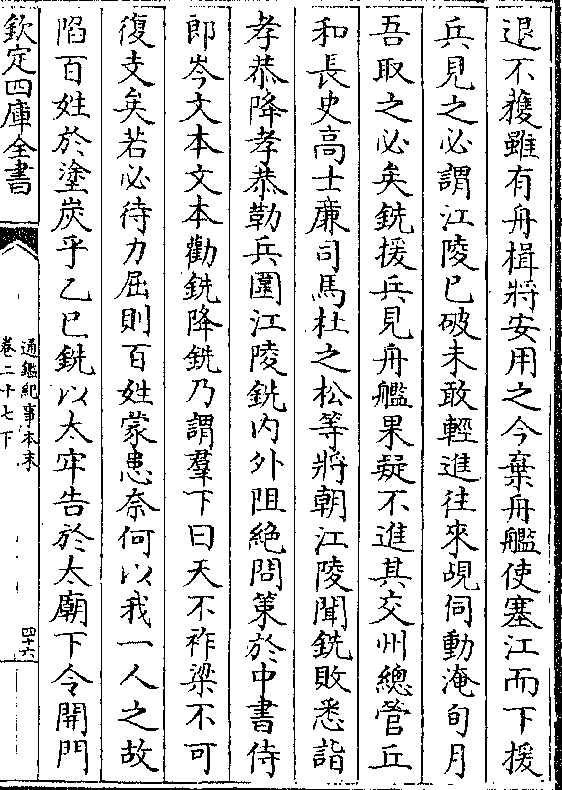 退不獲雖有舟楫將安用之今棄舟艦使塞江而下援
兵見之必謂江陵已破未敢輕進往來覘伺動淹旬月
吾取之必矣銑援兵見舟艦果疑不進其交州總管丘
和長史高士廉司馬杜之松等將朝江陵聞銑敗悉詣
孝恭降孝恭勒兵圍江陵銑内外阻絶問策於中書侍
郎岑文本文本勸銑降銑乃謂羣下曰天不祚梁不可
復支矣若必待力屈則百姓蒙患奈何以我一人之故
陷百姓於塗炭乎乙巳銑以太牢告於太廟下令開門
欽定四庫全書
通鑑紀事本末
卷二十七下
四十六